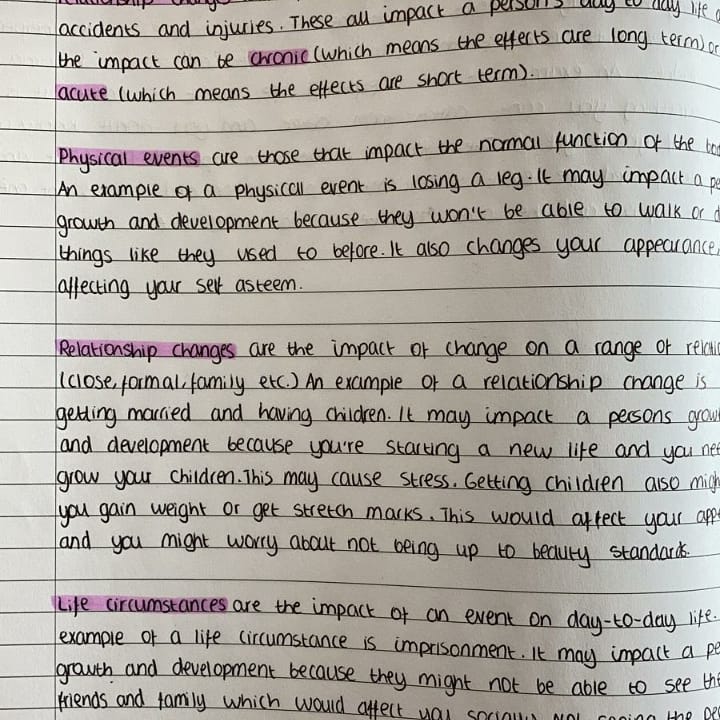 accidents and injuries. These all impact a person's day to day life
the impact can be chronic (which means the effects are long term) or
acute (which means the effects are short term).
Physical events are those that impact the normal function of the
An example of a physical event is losing a leg. It may impact a
growth and development because they won't be able to walk or
things like they used to before. It also changes your appearance,
affecting your self asteem.
Relationship changes are the impact of change on a range of
(close, formal, family etc.) An example of a relationship change is
getting married and having children. It may impact a persons
and development because you're starting a new life and you
grow your children. This may cause stress. Getting children also
you gain weight or get stretch marks. This would affect your
and you might worry about not being up to beauty standards.
Life circumstances are the impact of an event on day-to-day life.
example of a life circumstance is imprisonment. It may impact a
growth and development because they might not be able to see
friends and family which would affect you socially. Not seeing the